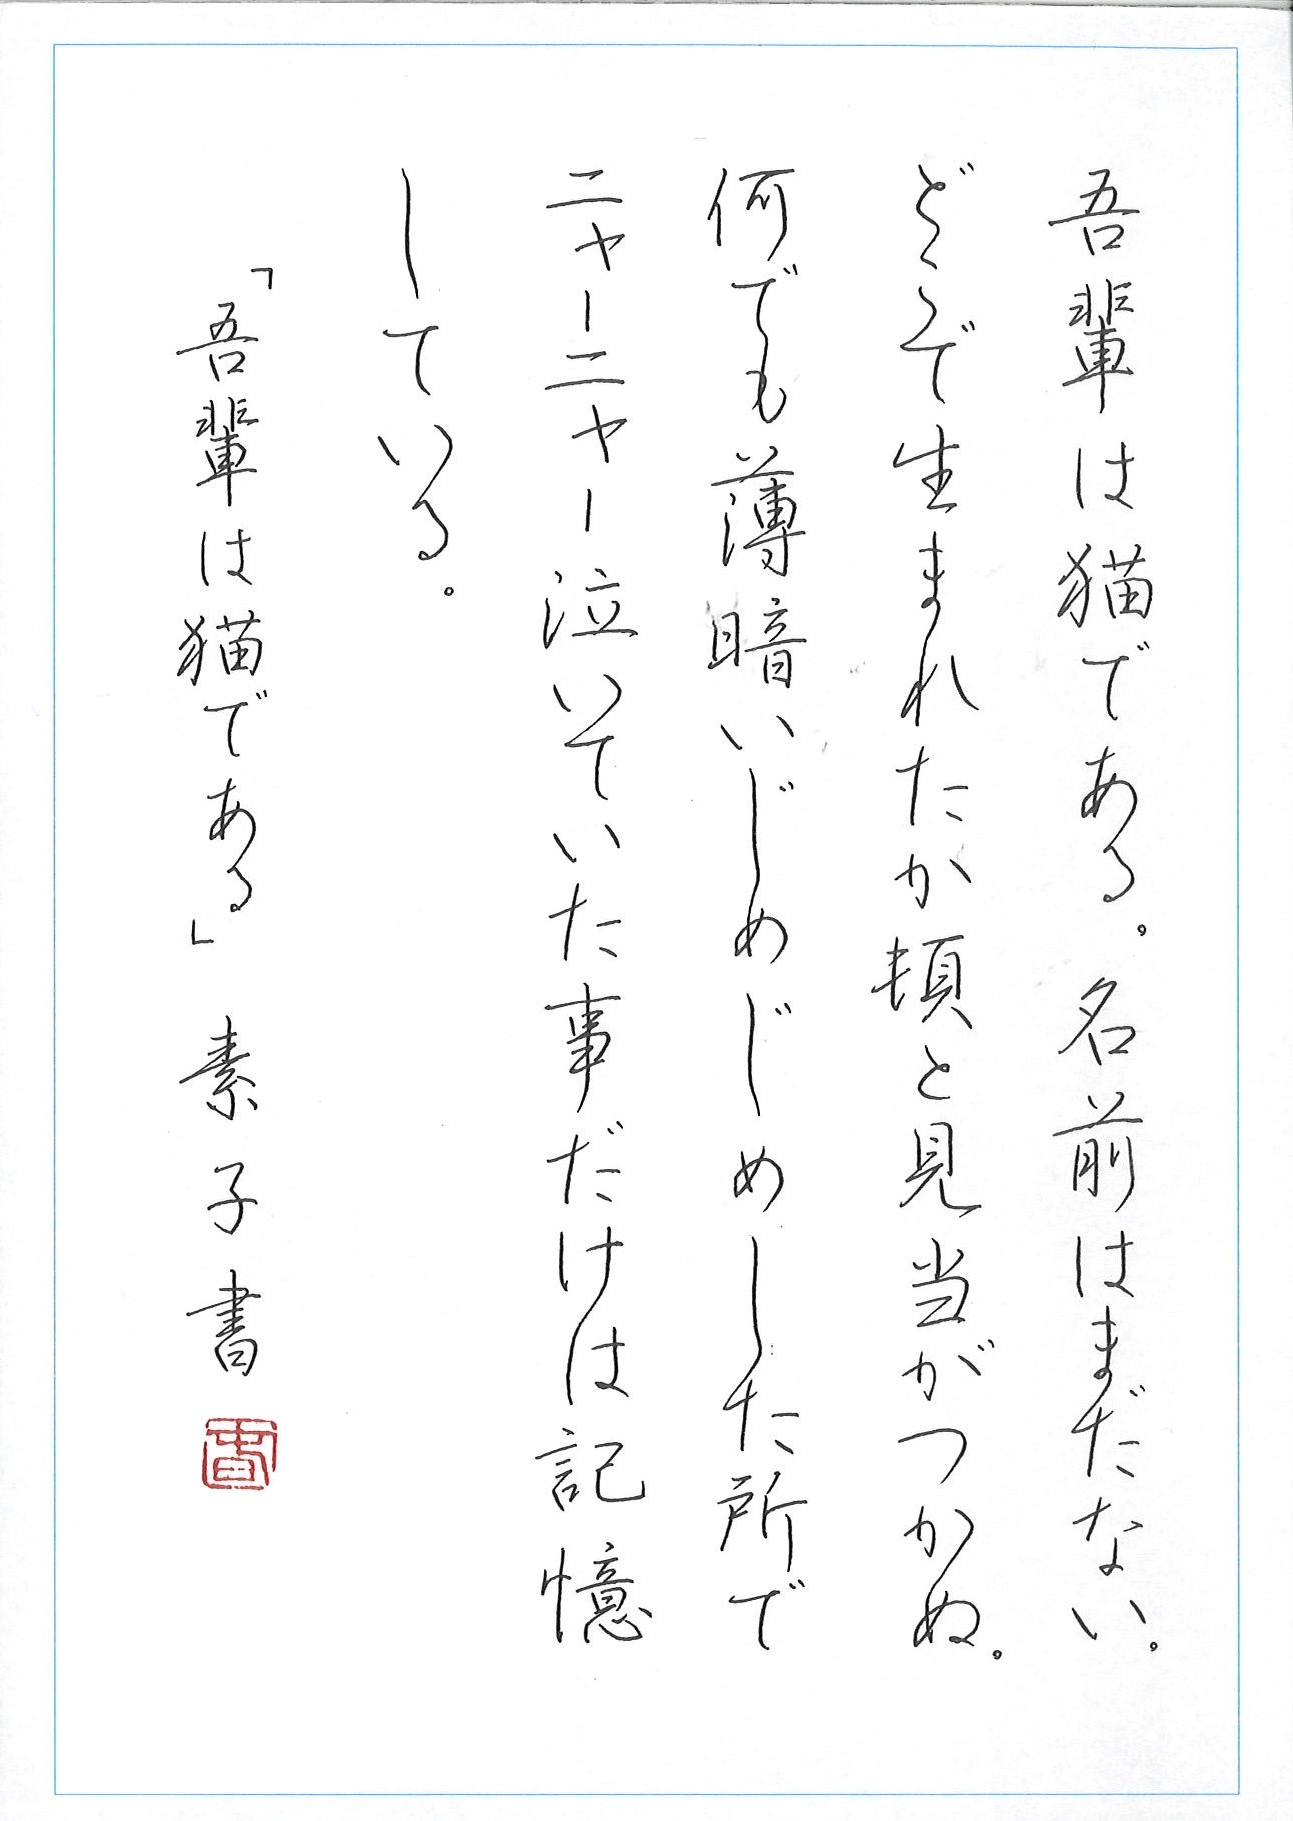 吾輩は猫である。名前はまだない。
どこで生まれたか頓と見当がつかぬ。
何でも薄暗いじめじめした所で
ニャーニャー泣いていた事だけは記憶
している。
「吾輩は猫である」 素子書